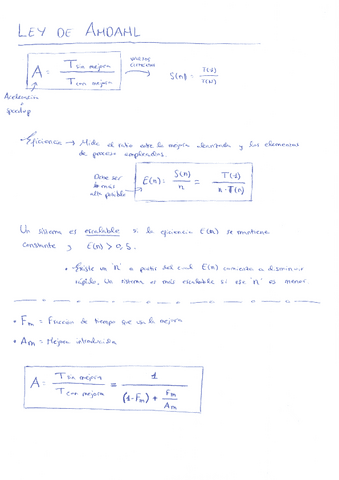 LEY DE AMDAHL
A = T sin mejora / T con mejora
VARIOS
S(n) = T(1) / T(n)
Aceleración
speedup
Eficiencia → Mide el ratio entre la mejora and los elementos
de proceso empleados.
Debe ser
lo más
alta posible
E(n) = S(n) / n = T(1) / n · T(n)
Un sistema es escalable si la eficiencia E(n) se mantiene
constante y E(n) > 0,5.
• Existe un 'n' a partir del cual E(n) comienza a disminuir
rápido. Un sistema es más escalable si ese 'n' es menor.
• Fm = Fracción de tiempo que usa la mejora
• Am = Mejora introducida
A = T sin mejora / T con mejora = 1 / (1-Fm) + Fm / Am